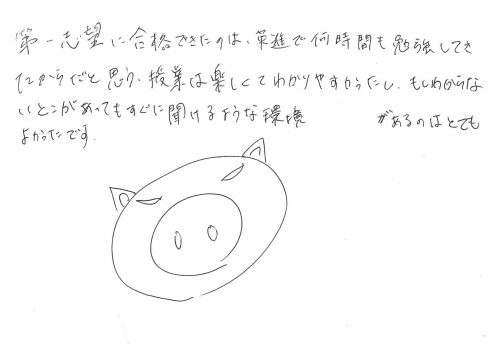 第一志望に合格できたのは、英進で何時間も勉強してき
たからだと思う。授業は楽しくてわかりやすかったし、もしわからな
いとこがあってもすぐに聞けるような環境 があるのはとても
よかったです.